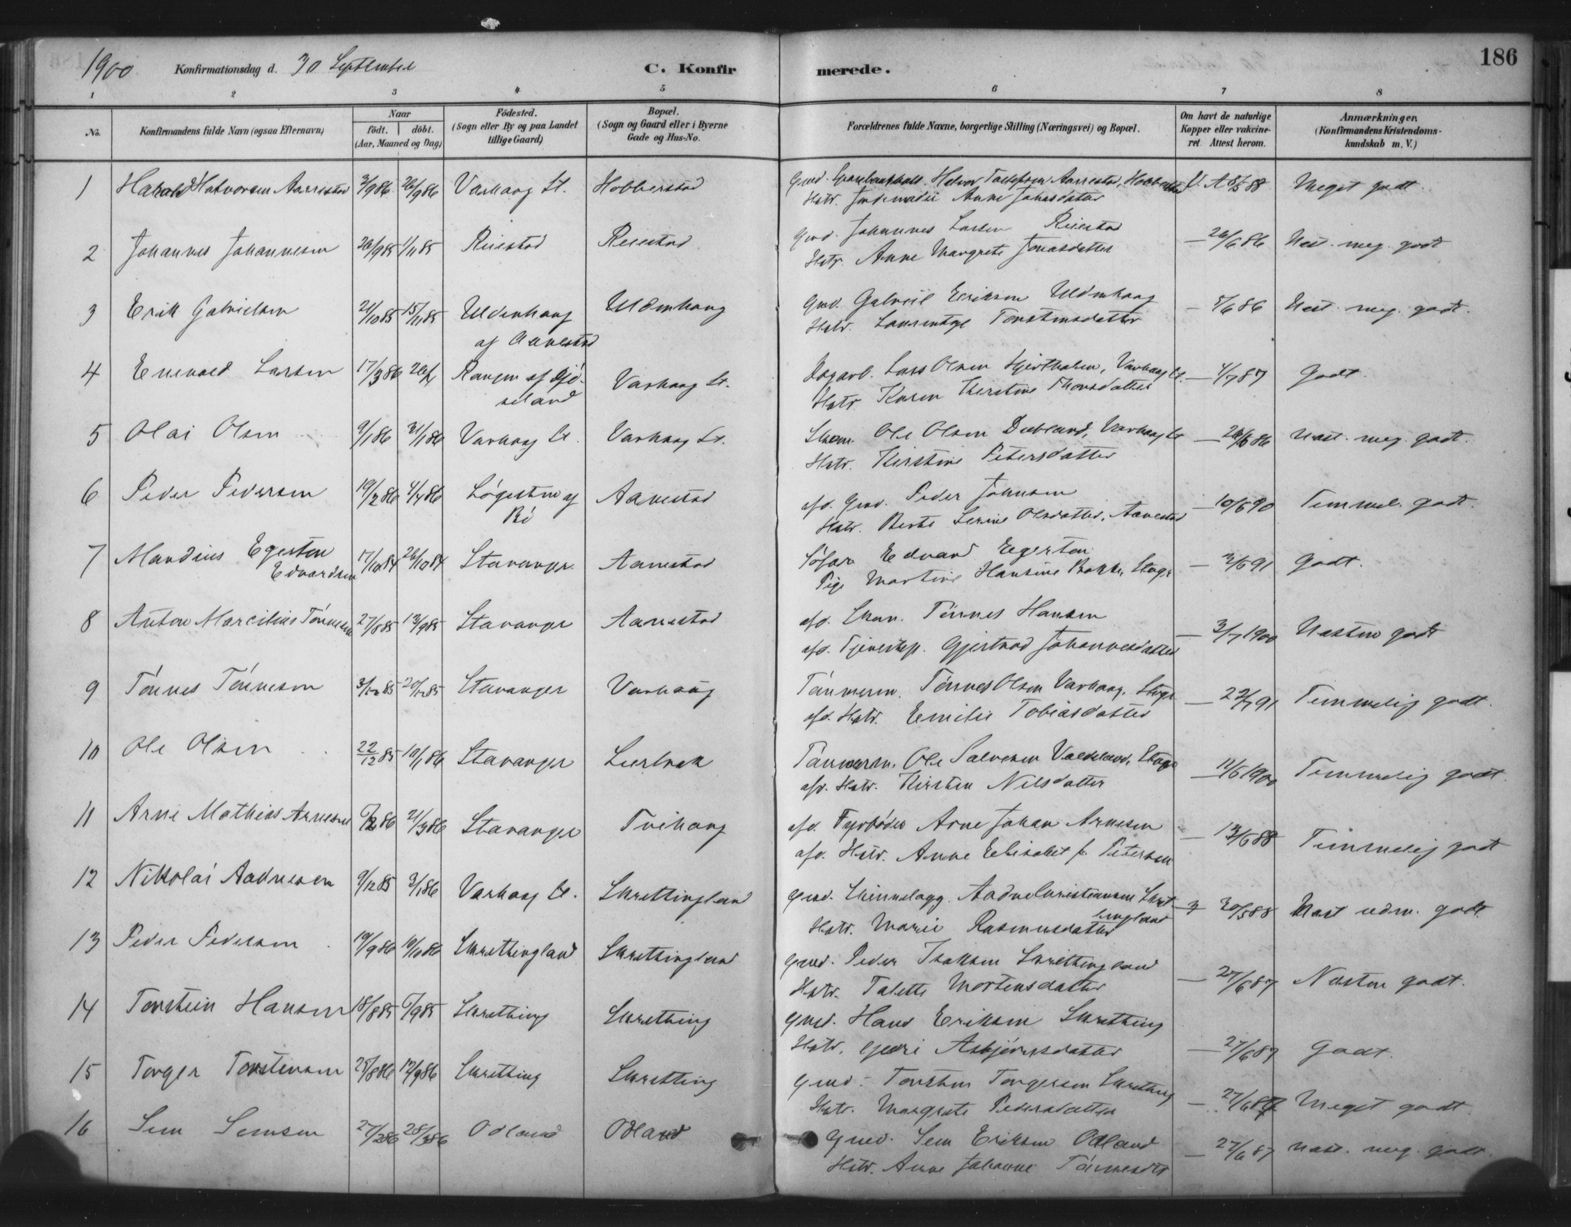 186
1900 Konfirmationsdag d. 30 September C. Konfirmerede.
1 2 3 4 5 6 7 8
No. Konfirmandens fulde Navn (ogsaa Efternavn) Naar født. døbt. (Aar, Maaned og Dag) Fødested. (Sogn eller By og paa Landet tillige Gaard) Bopæl. (Sogn og Gaard eller i Byerne Gade og Hus-No. Forældrenes fulde Navne, borgerlige Stilling (Næringsvei) og Bopæl. Om havt de naturlige Kopper eller vakcineret. Attest herom. Anmærkninger. (Konfirmandens Kristendomskundskab m. V.)
1 Harald Halvorsen Aarrestad 3/9 86 26/9 86 Varhaug St. Hobberstad Gmd. Halvor Tollefsen Aarrestad, Meget godt
Hstr. Anne Jonasdatter
2 Johannes Johannesen 26/9 85 1/11 85 Reiestad Reiestad Gmd. Johannes Larsen Reiestad — 26/6 86 Næst. meg. godt
Hstr. Anne Margrete Jonasdatter
3 Erik Gabrielsen 21/10 85 15/11 85 Uldenhaug af Aanestad Uldenhaug Gmd. Gabriel Eriksen Uldenhaug — 86 Næst. meg. godt.
Hstr. Torstensdatter
4 Enevald Larsen 17/3 86 Varhaug St. Lars Olsen Varhaug St. — 4/7 87 Godt.
Hstr. Karen Kirstine Thorsdatter
5 Olai Olsen 9/1 86 31/1 86 Varhaug St. Varhaug St. Skom. Ole Olsen Varhaug St — 86 næst. meg. godt.
Hstr. Kirstine Petersdatter
6 Peder Pedersen 19/2 86 4/4 86 Løgesten af Bø Aanestad afd. Gmd. Peder Johnsen — 10/6 90 Temmel. godt.
Hstr. Berte Serine Olsdatter, Aanestad
7 Mandius Egerton Edvardsen 17/10 84 26/10 84 Stavanger Aanestad Edvard Egerton — 3/6 91 Godt.
Pige Martine Hansine
8 Anton Marcilius Tønnesen 27/8 85 13/9 85 Stavanger Aanestad afd. Tønnes Hansen — 3/7 1900 Næsten godt
afd. Gjertrud Johannesdatter
9 Tønnes Tønnesen 85 85 Stavanger Varhaug Tønnes Olsen Varhaug, Stvgr — 22/7 91 Temmelig godt.
afd. Hstr. Emilie Tobiasdatter
10 Ole Olsen 22/12 85 10/1 86 Stavanger Lierbrek Ole Salvesen — 11/6 1900 Temmelig godt.
afd. Hstr. Kirsten Nilsdatter
11 Arne Mathias Arnesen 86 21/3 86 Stavanger Tvihaug afd. Fyrbøder Arne Johan Arnesen — 13/6 88 Temmelig godt
afd. Hstr. Anne Elisabet f. Petersen
12 Nikolai Aadnesen 9/12 85 3/1 86 Varhaug St. Skrettingland Gmd. Aadne Christiansen Skrettingland 88 Næst udm. godt
Hstr. Marie Rasmusdatter
13 Peder Pedersen 19/9 86 10/10 86 Skrettingland Skrettingland Gmd. Peder Isaksen Skrettingland — 27/6 87 Næsten godt.
Hstr. Talette Mortensdatter
14 Torstein Hansen 18/8 85 6/9 85 Skretting Skretting Gmd. Hans Eriksen Skretting — 27/6 87 Godt.
Hstr. Asbjørnsdatter
15 Torger Torstensen 25/8 86 12/9 86 Skretting Skretting Gmd. Torsten Torgersen Skretting — 27/6 87 Meget godt
Hstr. Margrete Pedersdatter
16 Sem Semsen 27/2 86 28/3 86 Odland Odland Gmd. Sem Eriksen Odland — 27/6 87 næst. meg. godt.
Hstr. Anne Johanne Tønnesdtr